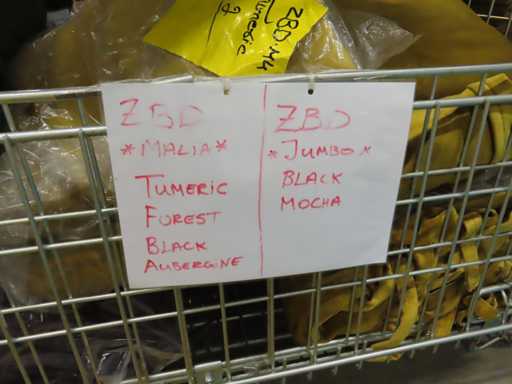 ZBD-M4
Tumeric
ZBD
*MALIA*
TUMERIC
FOREST
BLACK
AUBERGINE
ZBD
*JUMBO*
BLACK
MOCHA